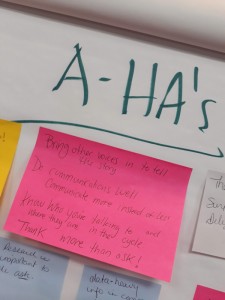 A-HA's
Bring other voices in to tell
this story
Do communications well
Communicate more instead of less
Know who your talking to and
where they are in their cycle
Thank more than ask!
Th
Sun
deliv
Research is
important to
ask.
data-heavy
info